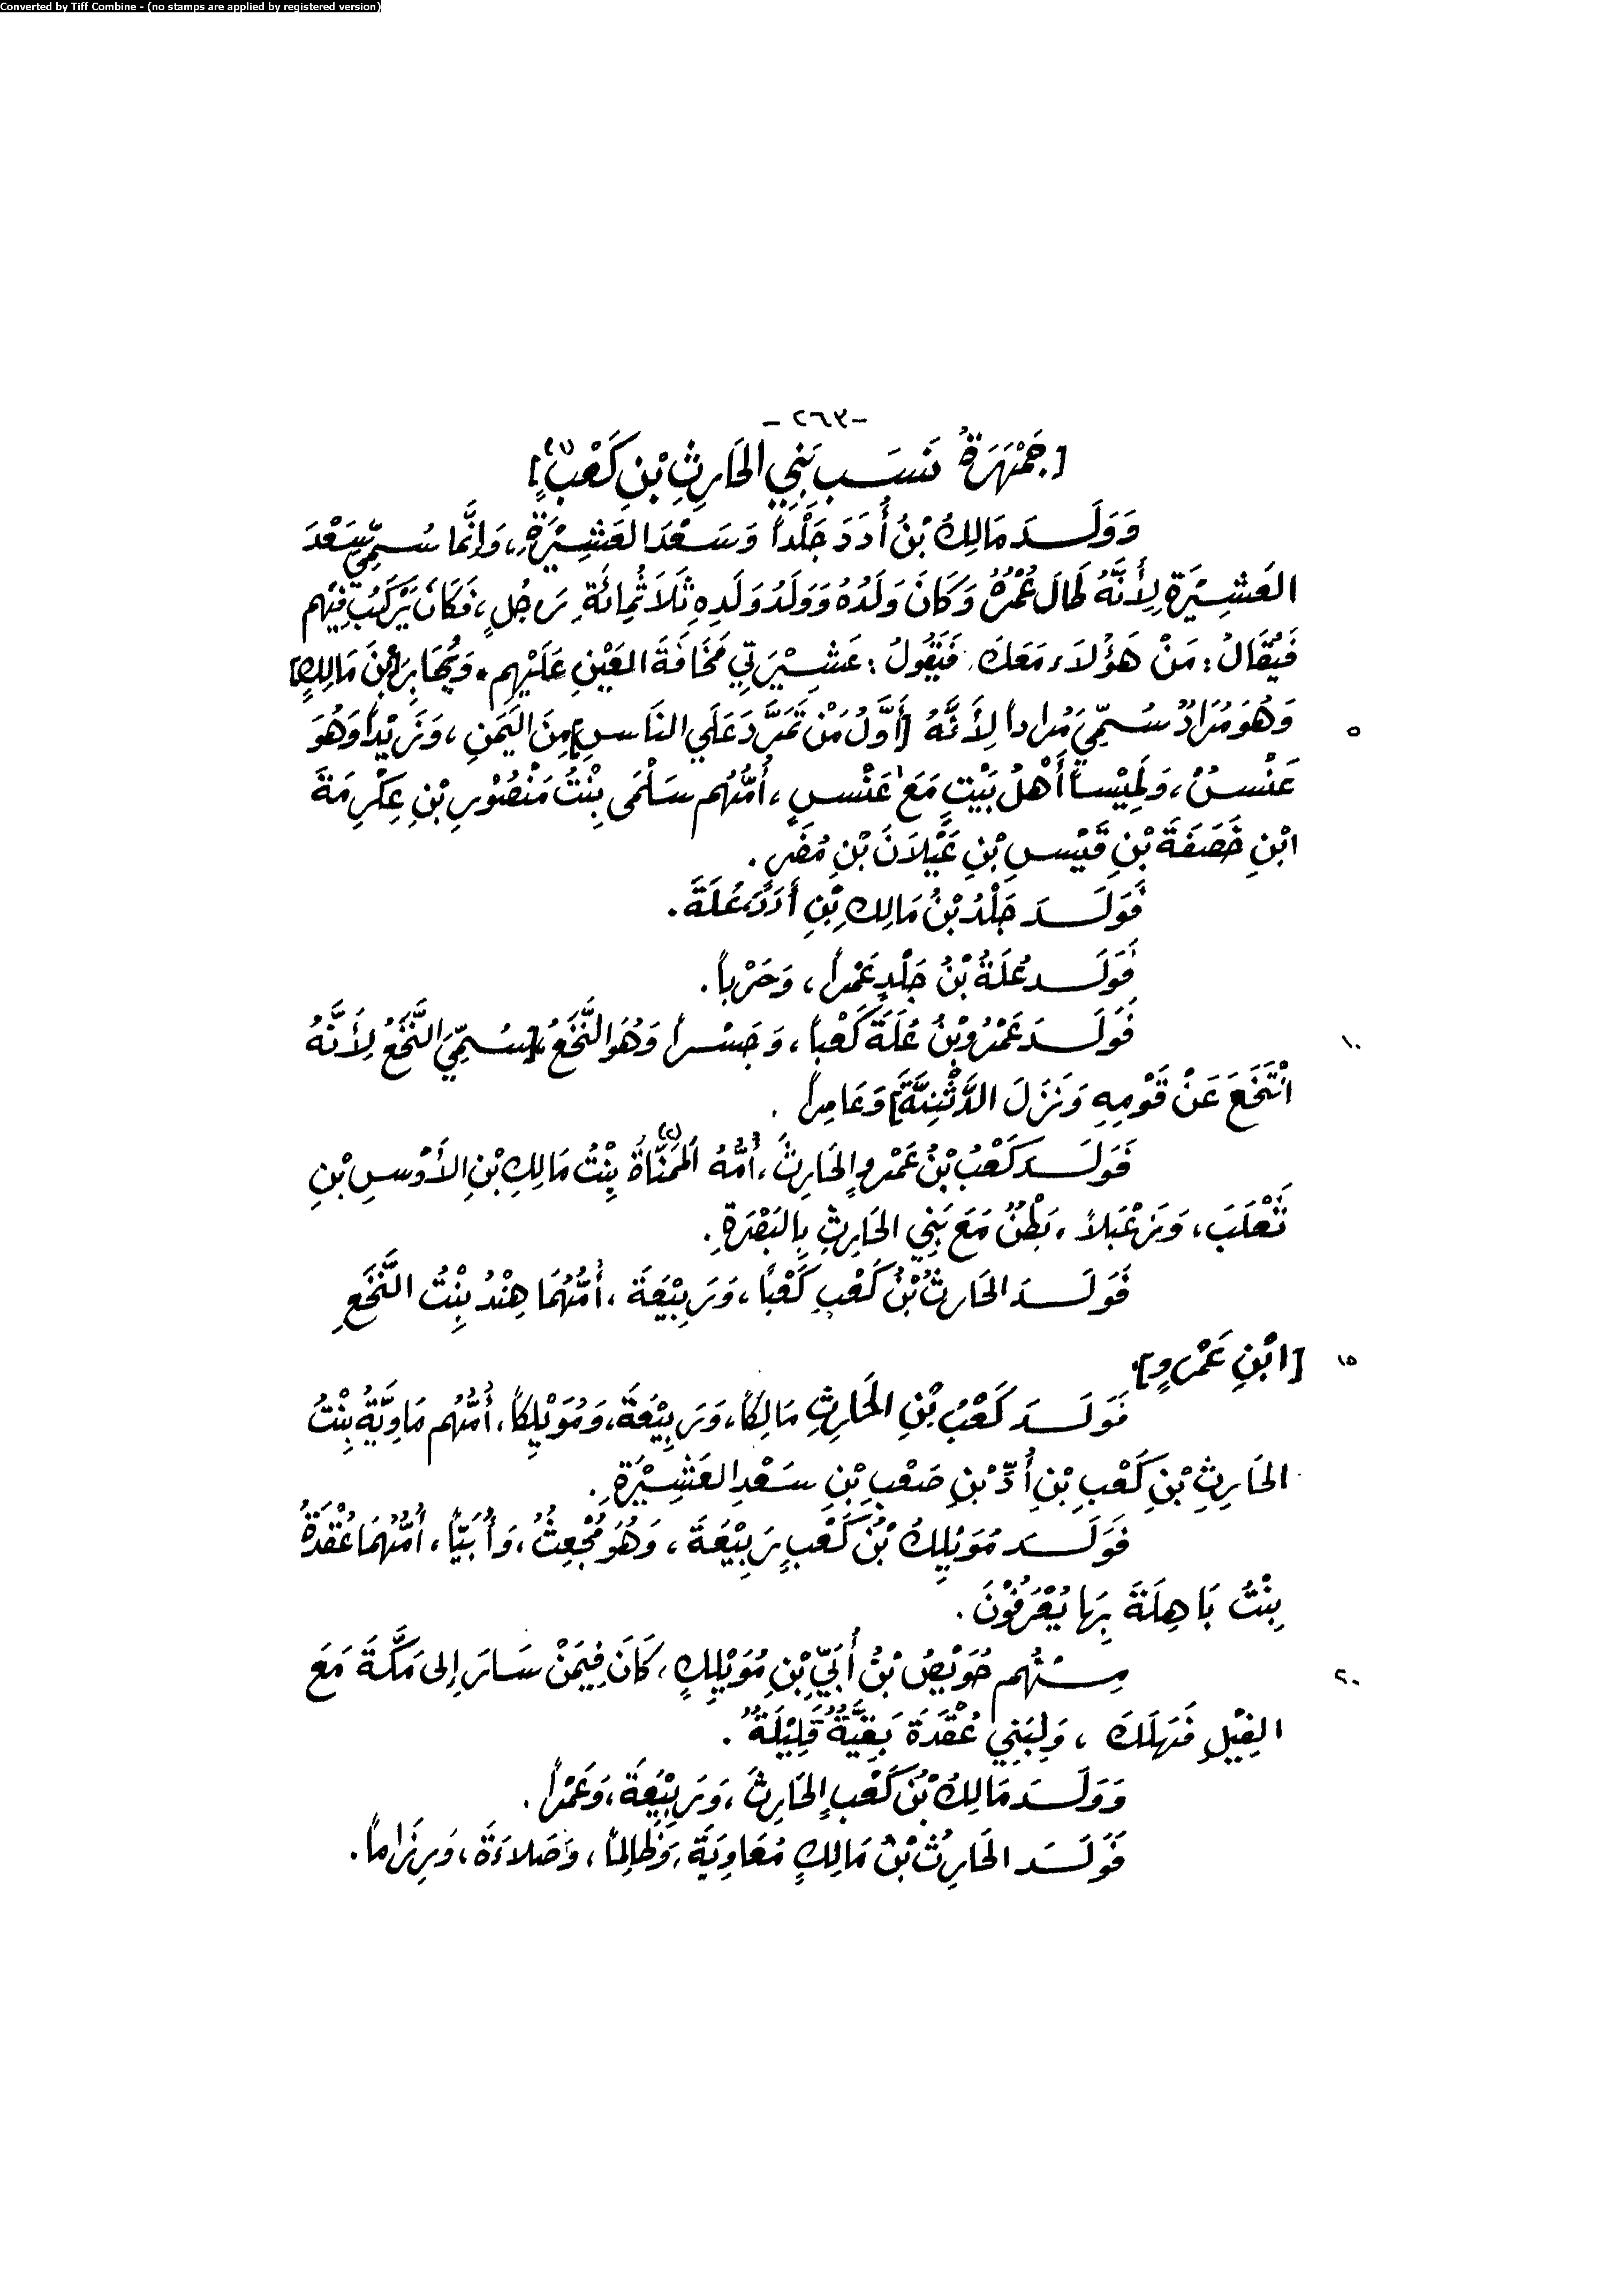 Converted by Tiff Combine - (no stamps are applied by registered version)
-٢٦٣-
[جَمْهَرَةُ نَسَبِ بَنِي الحَارِثِ بْنِ كَعْبٍ](١)
وَوَلَدَ مَالِكُ بْنُ أُدَدَ جَلْداً وَسَعْدَ العَشِيْرَةِ، وَإِنَّمَا سُمِّيَ سَعْدَ
العَشِيْرَةِ لِأَنَّهُ طَالَ عُمْرُهُ وَكَانَ وَلَدُهُ وَوَلَدُ وَلَدِهِ ثَلَاثُمِائَةِ رَجُلٍ، فَكَانَ يَرْكَبُ فِيْهِم
فَيُقَالُ: مَنْ هَؤُلَاءِ مَعَكَ. فَيَقُولُ: عَشِيْرَتِي مَخَافَةَ العَيْنِ عَلَيْهِم. وَيُحَابِرَ[بْنَ مَالِكٍ]
وَهُوَ مُرَادٌ سُمِّيَ مُراداً لِأَنَّهُ [أَوَّلُ مَنْ تَمَرَّدَ عَلَي النَاسِ]مِنَ اليَمَنِ، وَزَيْداً وَهُوَ
٥
عَنْسٌ، وَلَمِيْساً أَهْلُ بَيْتٍ مَعَ عَنْسٍ، أُمُّهُم سَلْمَى بِنْتُ مَنْصُوْرِ بْنِ عِكْرِمَةَ
ابْنِ خَصَفَةَ بْنِ قَيْسِ بْنِ عَيْلَانَ بْنِ مُضَرٍ.
فَوَلَدَ جَلْدُ بْنُ مَالِكِ بْنِ أُدَدَ عُلَةَ.
فَوَلَدَ عُلَةُ بْنُ جَلْدٍ عَمْراً، وَحَرْباً.
فَوَلَدَ عَمْرُو بْنُ عُلَةَ كَعْباً، وَجَسْراً وَهُوَ النَّخَعُ [سُمِّيَ النَّخَعُ لِأَنَّهُ
١٠
انْتَخَعَ عَنْ قَوْمِهِ وَنَزَلَ الدَّثْنِيَّةَ] وَعَامِراً.
فَوَلَدَ كَعْبُ بْنُ عَمْرٍو الحَارِثَ، أُمُّهُ المَمَنَّاةُ(٢) بِنْتُ مَالِكِ بْنِ الأَوْسِ بْنِ
تَغْلَبَ، وَزَعْبَلاً، بَطْنٌ مَعَ بَنِي الحَارِثِ بِالبَصْرَةِ.
فَوَلَدَ الحَارِثُ بْنُ كَعْبٍ كَعْباً، وَرَبِيْعَةَ، أُمُّهُمَا هِنْدُ بِنْتُ النَّخَعِ
[ابْنِ عَمْرٍو].
١٥
فَوَلَدَ كَعْبُ بْنِ الحَارِثِ مَالِكاً، وَرَبِيْعَةَ، وَمُوَيْلِكاً، أُمُّهُم مَاوِيَّةُ بِنْتُ
الحَارِثِ بْنِ كَعْبِ بْنِ أُدِّ بْنِ صَعْبِ بْنِ سَعْدِ العَشِيْرَةِ.
فَوَلَدَ مُوَيْلِكُ بْنُ كَعْبٍ رَبِيْعَةَ، وَهُوَ مُجْعِثٌ، وَأُبَيّاً، أُمُّهُمَا عُقْدَةُ
بِنْتُ بَاهِلَةَ بِهَا يُعْرَفُوْنَ.
مِنْهُم حُوَيْصُ بْنُ أُبَيِّ بْنِ مُوَيْلِكٍ، كَانَ فِيَمَنْ سَارَ إِلى مَكَّةَ مَعَ
٢٠
الفِيْلِ فَهَلَكَ، وَلِبَنِي عُقْدَةَ بَقِيَّةٌ قَلِيْلَةٌ.
وَوَلَدَ مَالِكُ بْنُ كَعْبٍ الحَارِثَ، وَرَبِيْعَةَ، وَعَمْراً.
فَوَلَدَ الحَارِثُ بْنُ مَالِكٍ مُعَاوِيَةَ، وَظَالِماً، وَصَلاءَةَ، وَرِزَاماً.